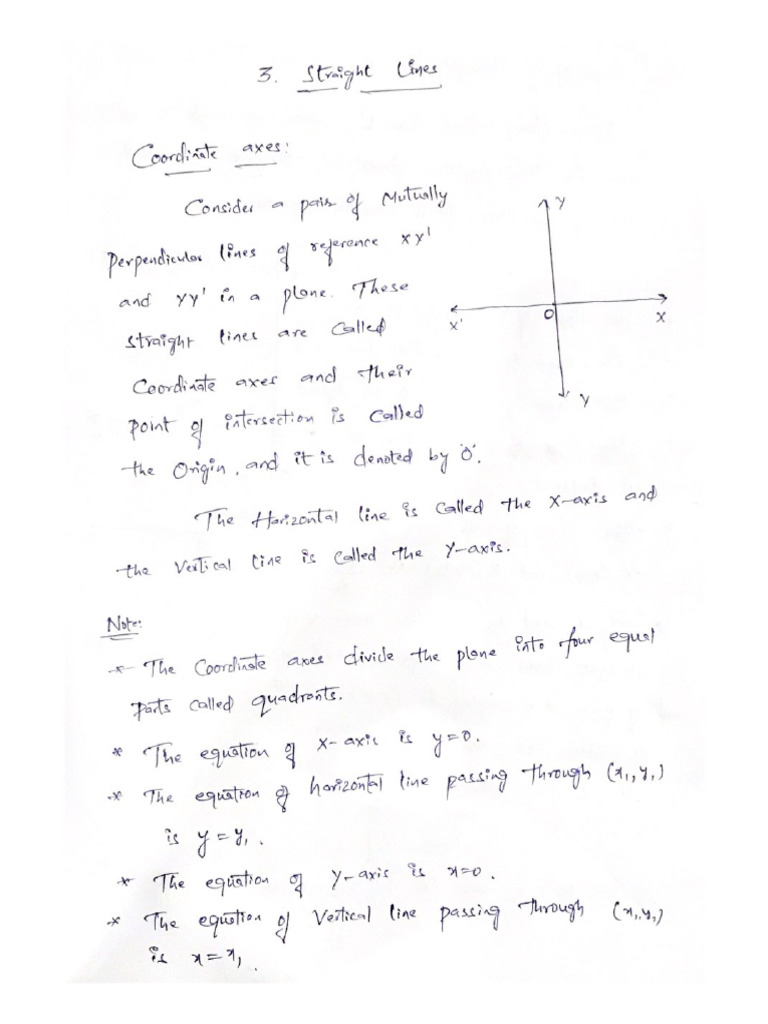 3. Straight Lines
Coordinate axes:
Consider a pair of Mutually
Perpendicular lines of reference xx'
and yy' in a plane. These
straight lines are called
Coordinate axes and their
point of intersection is called
the Origin, and it is denoted by 'O'.
Y
X'
O
X
Y
The Horizontal line is called the X-axis and
the Vertical line is called the Y-axis.
Note:
* The Coordinate axes divide the plane into four equal
Parts called quadrants.
* The equation of x-axis is y=0.
* The equation of horizontal line passing through (x₁,y₁)
is y=y₁.
* The equation of y-axis is x=0.
* The equation of Vertical line passing through (x₁,y₁)
is x=x₁.